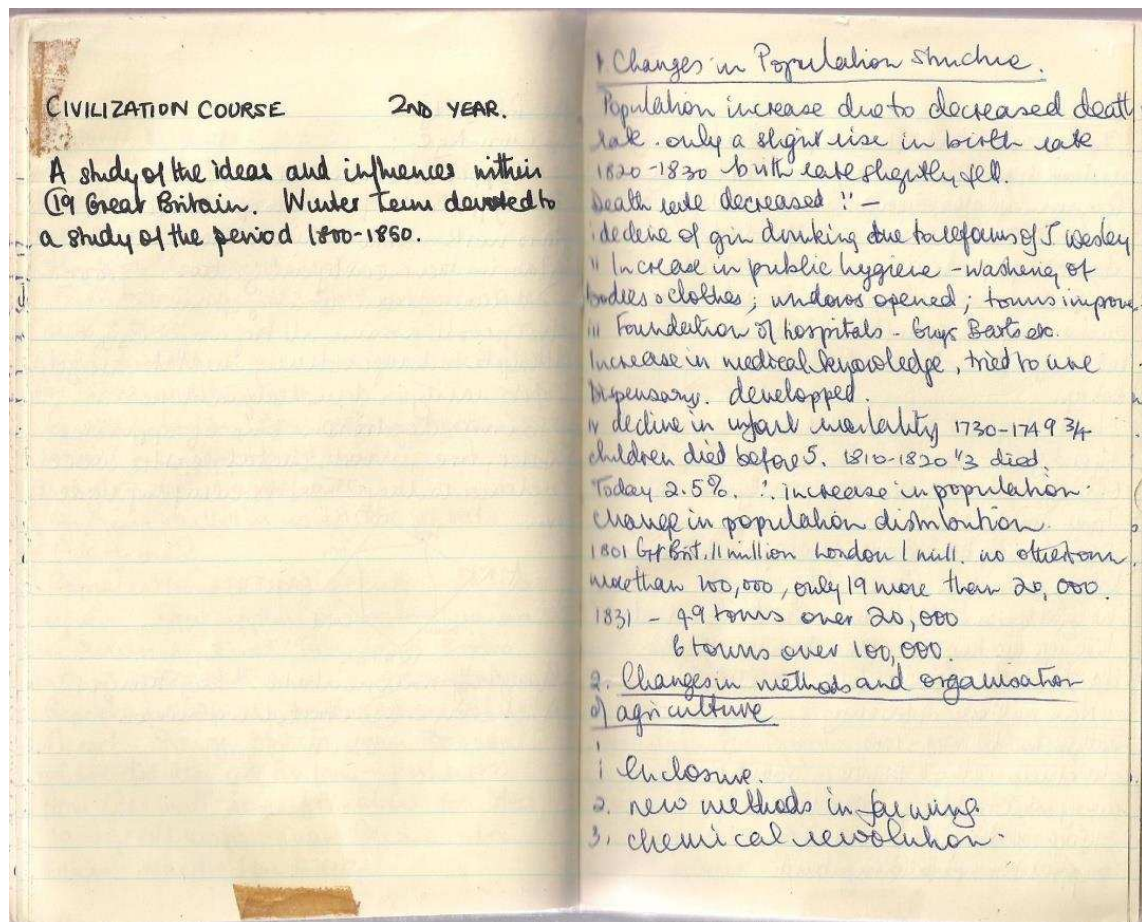 CIVILIZATION COURSE 2ND YEAR.
A study of the ideas and influences within
C19 Great Britain. Winter Term devoted to
a study of the period 1800-1850.
1. Changes in Population Structure.
Population increase due to decreased death
rate. only a slight rise in birth rate
1820-1830 birth rate slightly fell.
Death rate decreased ∵ —
i decline of gin drinking due to reforms of J Wesley
ii Increase in public hygiene - washing of
bodies & clothes; windows opened; towns improve
iii Foundation of hospitals - Guys Barts etc.
Increase in medical knowledge, tried to use
Dispensary. developped.
iv decline in infant mortality 1730-1749 3/4
children died before 5. 1810-1820 1/3 died.
Today 2.5%. ∴ increase in population.
Change in population distribution.
1801 Gt Brit. 11 million London 1 mill. no other town
more than 100,000, only 19 more than 20,000.
1831 - 49 towns over 20,000
6 towns over 100,000.
2. Changes in methods and organisation
of agriculture
1 Enclosure.
2. new methods in farming.
3. chemical revolution.